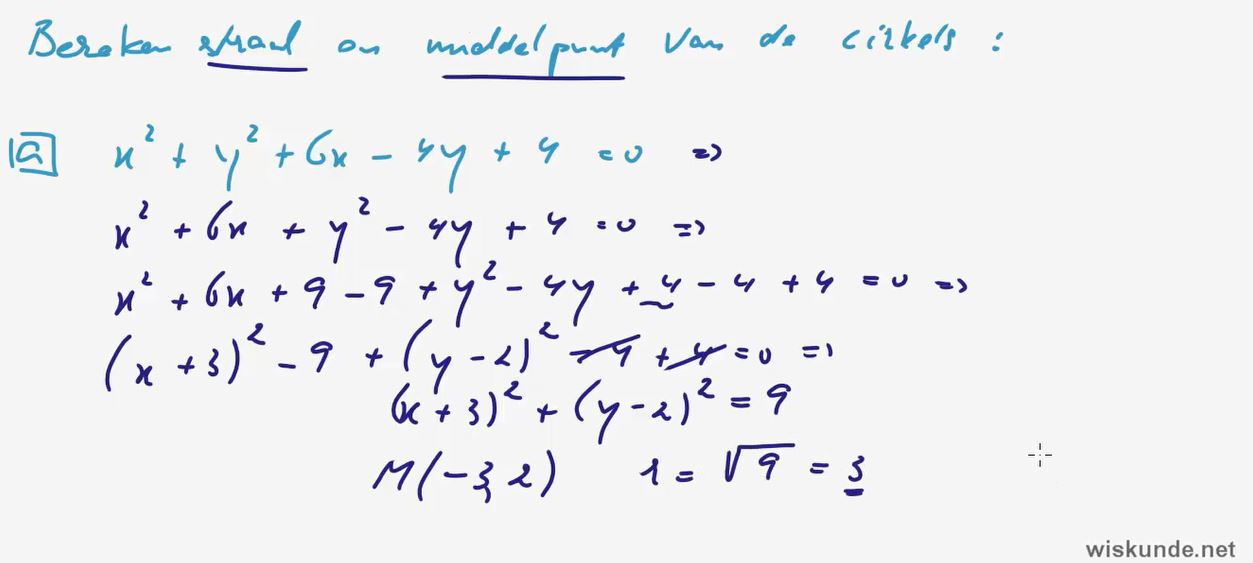 Bereken straal en middelpunt van de cirkels :
a x² + y² + 6x - 4y + 4 = 0 =>
x² + 6x + y² - 4y + 4 = 0 =>
x² + 6x + 9 - 9 + y² - 4y + 4 - 4 + 4 = 0 =>
(x + 3)² - 9 + (y - 2)² - 4 + 4 = 0 =>
(x + 3)² + (y - 2)² = 9
M(-3, 2) r = √9 = 3
wiskunde.net